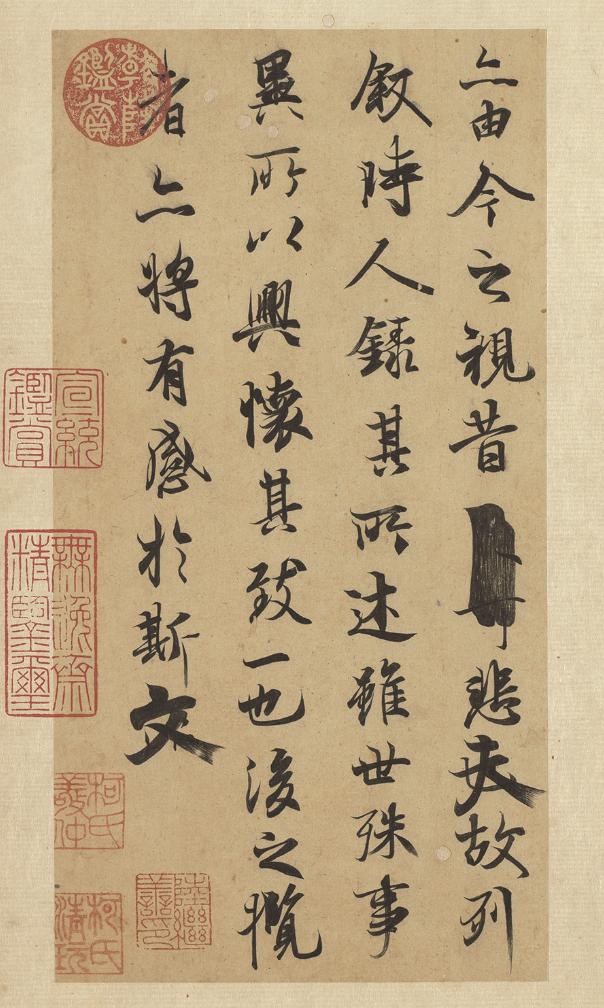 亦由今之視昔悲夫故列
叙時人録其所述雖世殊事
異所以興懷其致一也後之攬
者亦將有感於斯文
乾隆鑑賞
宣統
鑑賞
無逸齋
精鑒璽
柯氏
敬仲
柯氏
清玩
陸繼
善印